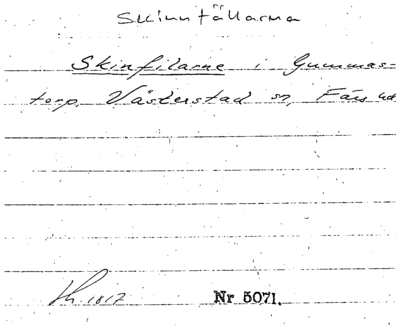 Skinnfällarna
Skinfilarne i Gummas=
torp. Västerstad sn, Färs hd
1817 Nr 5071.